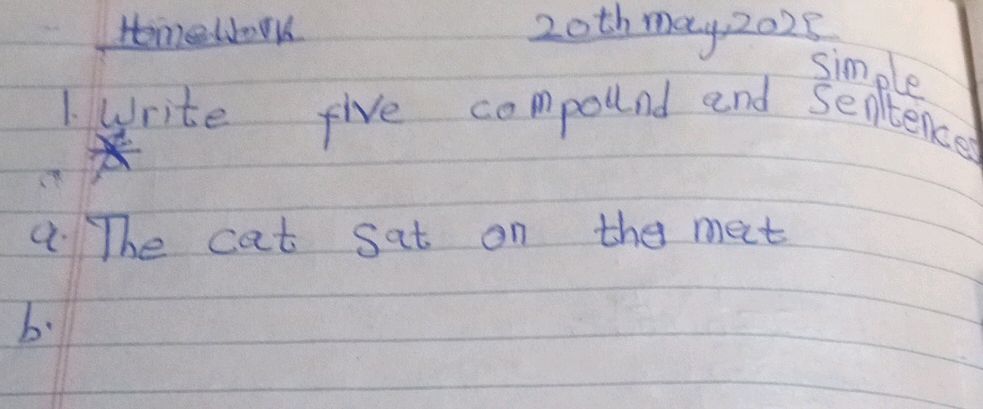 Homework 20th may, 2025
1. Write five compound and simple sentences
a. The cat sat on the mat
b.